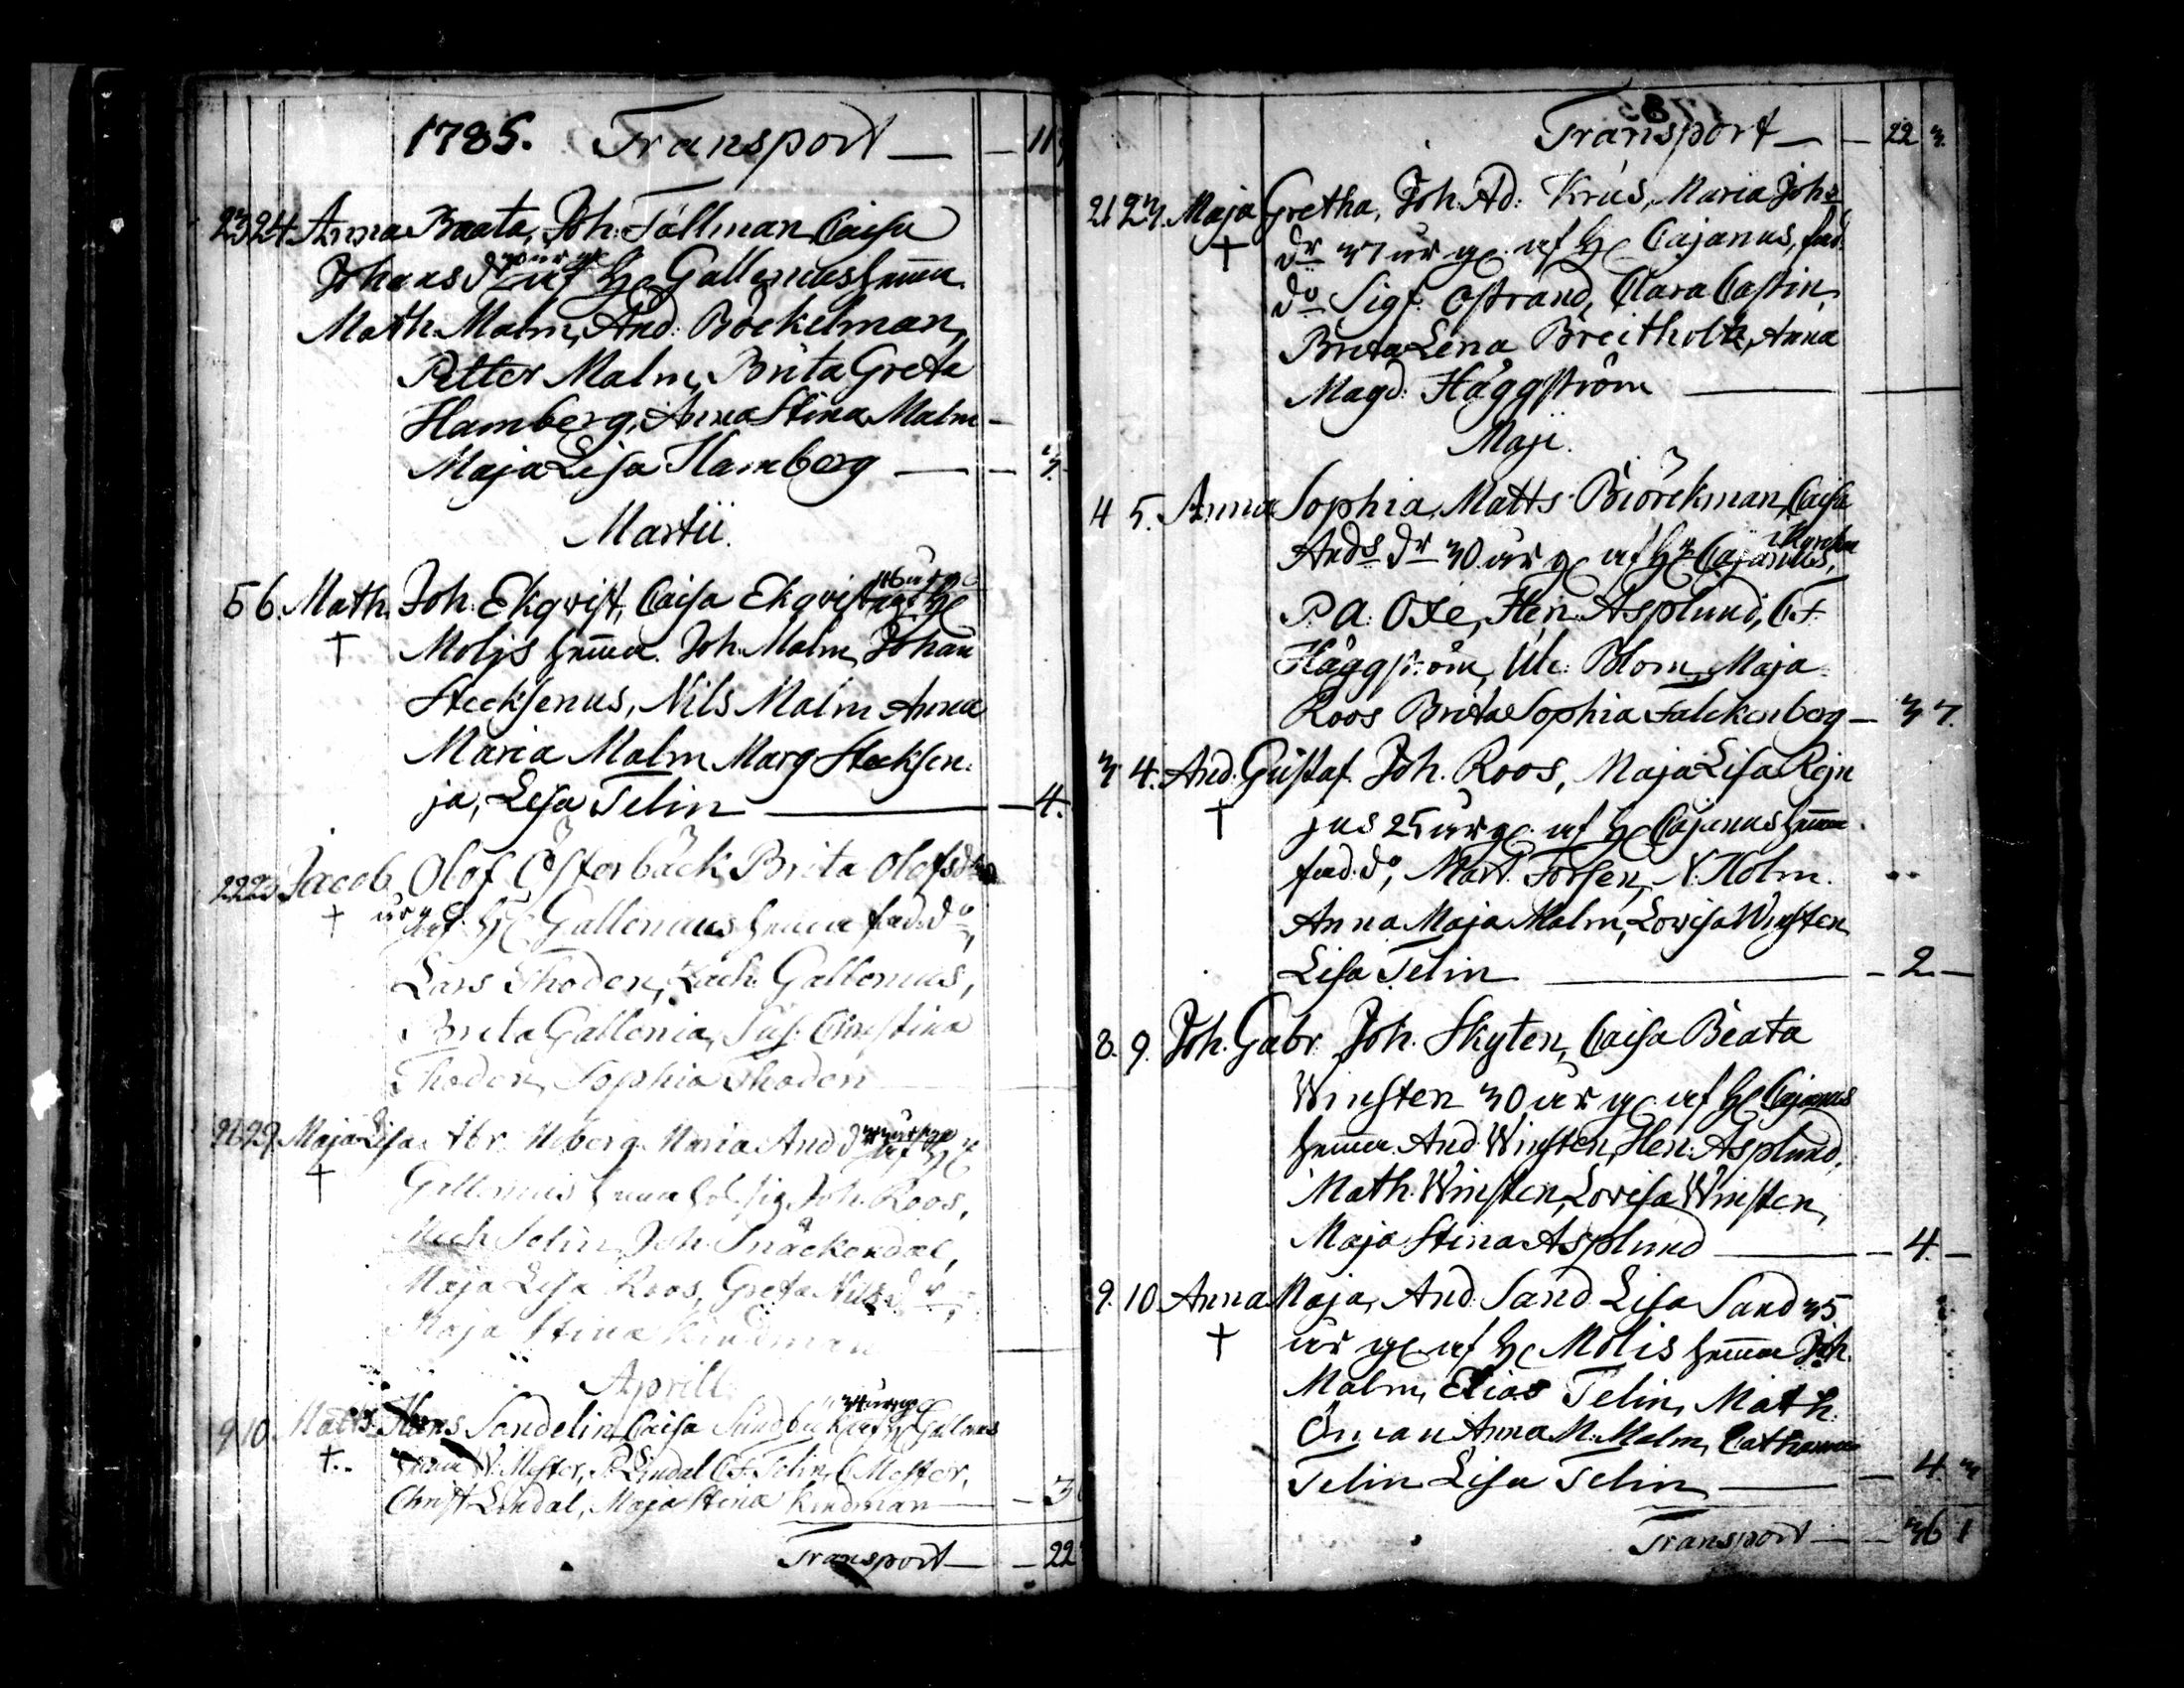 1785. Transport — — 11
23 24. Anna Beata, Joh. Tállman Caisa
Johansdr af Hc Gallenus hemma
30 år gl
Math. Malm, And: Böckelman,
Petter Malm, Brita Greta
Hamberg, Anna Stina Malm
Maja Lisa Hamberg — — 3.
Martii.
5 6. Math. Joh. Ekqvist, Caisa Ekqvist af Hc
†
Molijs hemma. Joh. Malm, Johan
Stecksenus, Nils Malm Anna
Maria Malm Marg Stecksen:
ja, Lisa Telin — 4.
22 23 Jacob, Olof Österbäck Brita Olofsdr
† år gl. af Hc Gallenius hemma fad. do,
Lars Thoden, Zach. Gallenius,
Brita Gallenia, Sus. Christina
Thoden, Sophia Thoden
Maja Lisa Abr. Moberg Maria And dr
† af Hc
Gallenius hemma Joh. Roos,
Mich Selin, Joh. Snäckendal,
Maja Lisa Roos, Greta Nilsdr,
Maja Stina Kindman
Aprill
9 10. Matts Hans Sandelin, Caisa Sundbäck af Hc Galenus
†. hemma N. Mester, P. Lindal C.F. Telin, C Mester,
Christ Lindal, Maja Stina Kindman — — 3
Transport — — 22
Transport — — 22 3.
21 23. Maja Gretha, Joh. Ad: Krus, Maria Johs
† dr 37 år gl. af Hc Cajanus, fad.
do Sigf. Ostrand, Clara Castrin
Brita Lena Breitholtz, Anna
Magd. Häggström —
Maji.
4 5. Anna Sophia, Matts Biörckman, Caisa
Ands dr 30 år gl af Hr Cajanus,
P. A. Oxe, Hen: Asplund, C.F.
Häggström, Ulr. Blom, Maja
Roos Brita Sophia Falckenberg — 3 7.
3 4. And. Gustaf. Joh. Roos, Maja Lisa Rejn
† jus 25 år gl. af Hc Cajanus hemma.
fad. do, Mart. Forsen, N. Holm.
Anna Maja Malm, Lovisa Winsten
Lisa Telin — — 2 —
8. 9. Joh. Gabr. Joh. Skyten, Caisa Beata
Winsten 30 år gl. af Hc Cajanus
hemma. And. Winsten, Hen: Asplund,
Math. Winsten, Lovisa Winsten,
Maja Stina Asplund — — 4. —
9. 10 Anna Maja, And. Sand Lisa Sand 35.
† år gl af Hc Molis hemma Joh.
Malm, Elias Telin, Math.
Öman Anna M. Malm, Catharina
Telin Lisa Telin — — 4 3
Transport — — 36 1